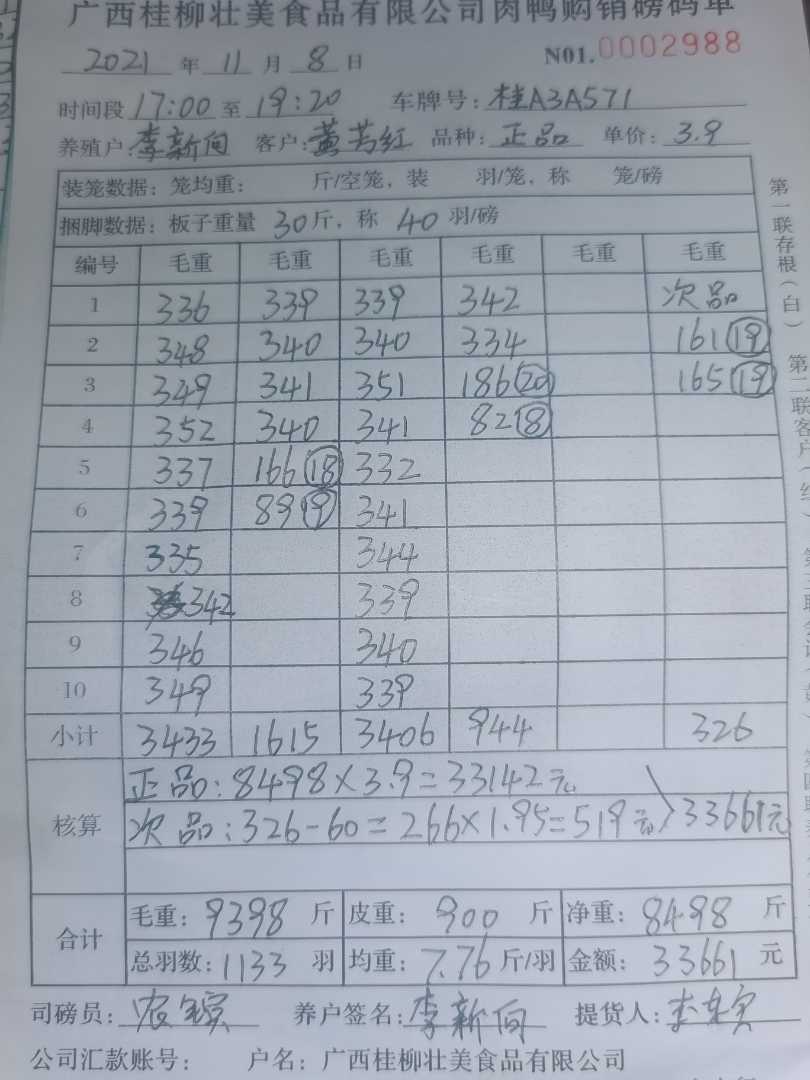 广西桂柳壮美食品有限公司肉鸭购销磅码单
2021 年 11 月 8 日 N01.0002988
时间段 17:00 至 19:20 车牌号: 桂A3A571
养殖户: 李新向 客户: 黄芳红 品种: 正品 单价: 3.9
装笼数据: 笼均重: 斤/空笼, 装 羽/笼, 称 笼/磅
捆脚数据: 板子重量 30斤, 称 40 羽/磅
编号 毛重 毛重 毛重 毛重 毛重 毛重
1 336 339 339 342 次品
2 348 340 340 334 161 19
3 349 341 351 186 20 165 19
4 352 340 341 82 18
5 337 166 18 332
6 339 89 9 341
7 335 344
8 342 339
9 346 340
10 349 339
小计 3433 1615 3406 944 326
核算 正品: 8498×3.9=33142元
次品: 326-60=266×1.95=519元 33661元
合计 毛重: 9398 斤 皮重: 900 斤 净重: 8498 斤
总羽数: 1133 羽 均重: 7.76 斤/羽 金额: 33661 元
司磅员: 养户签名: 李新向 提货人:
公司汇款账号: 户名: 广西桂柳壮美食品有限公司
第一联存根(白) 第二联客户(红)